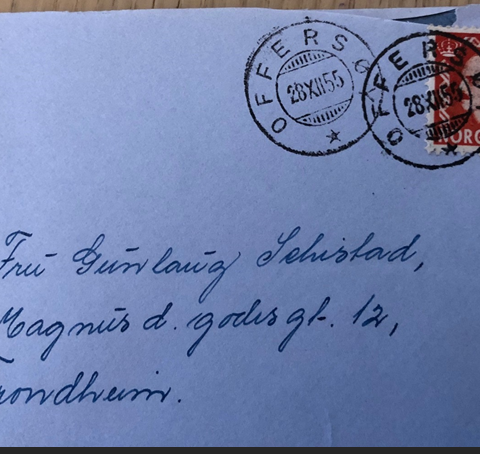 OFFERSØ
28 XII 55
OFFERSØ
28 XII 55
NORG
Fru Gunlaug Schistad,
Magnus d. godes gt. 12,
Trondheim.